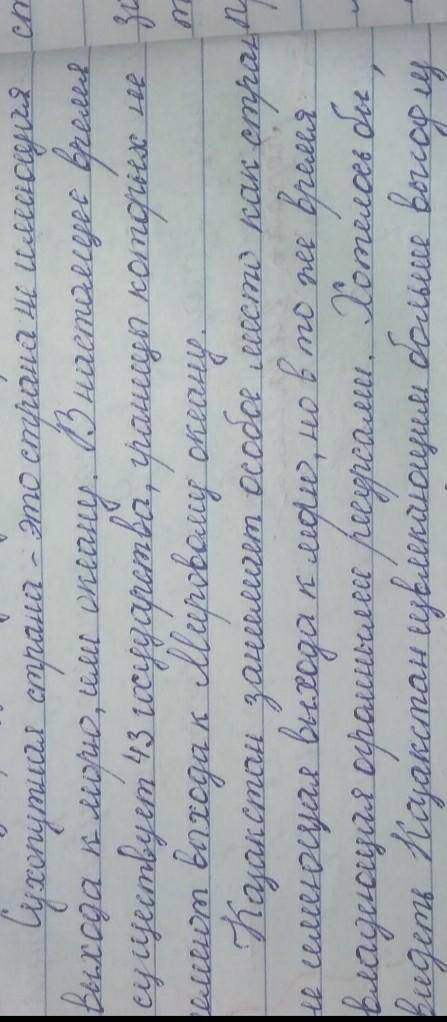 Сухопутная страна - это страна не имеющая
выхода к морю, или океану. В настоящее время
существует 43 государства, границы которых не
имеют выхода к Мировому океану.
Казахстан занимает особое место как стран
не имеющая выхода к морю, но в то же время
владеющая огромными ресурсами. Хотелось бы,
видеть Казахстан извлекающим больше выгоды